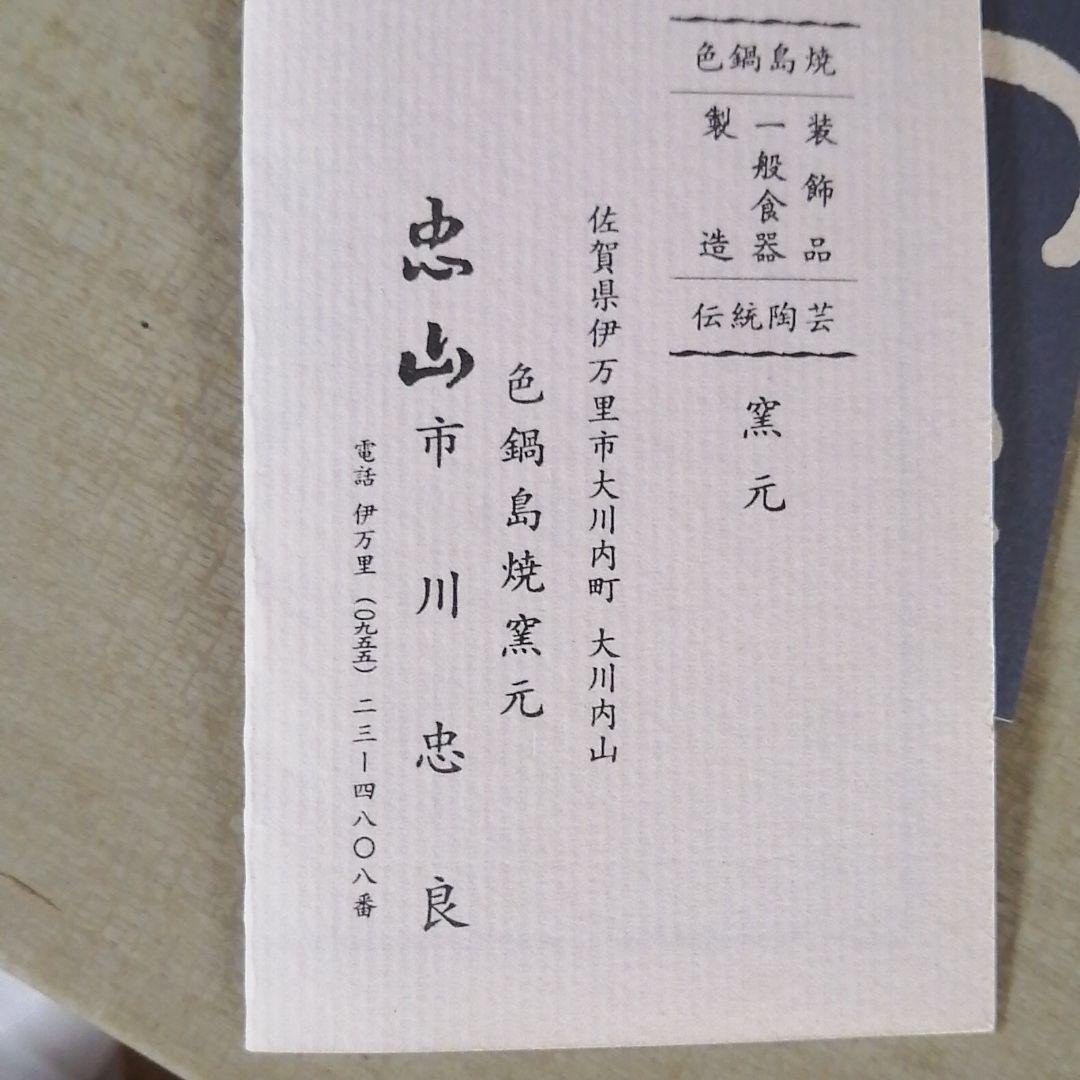 色鍋島焼
装飾品
一般食器
製造
伝統陶芸
窯元
佐賀県伊万里市大川内町 大川内山
色鍋島焼窯元
忠山市川忠良
電話 伊万里(〇九五五)二三ー四八〇八番